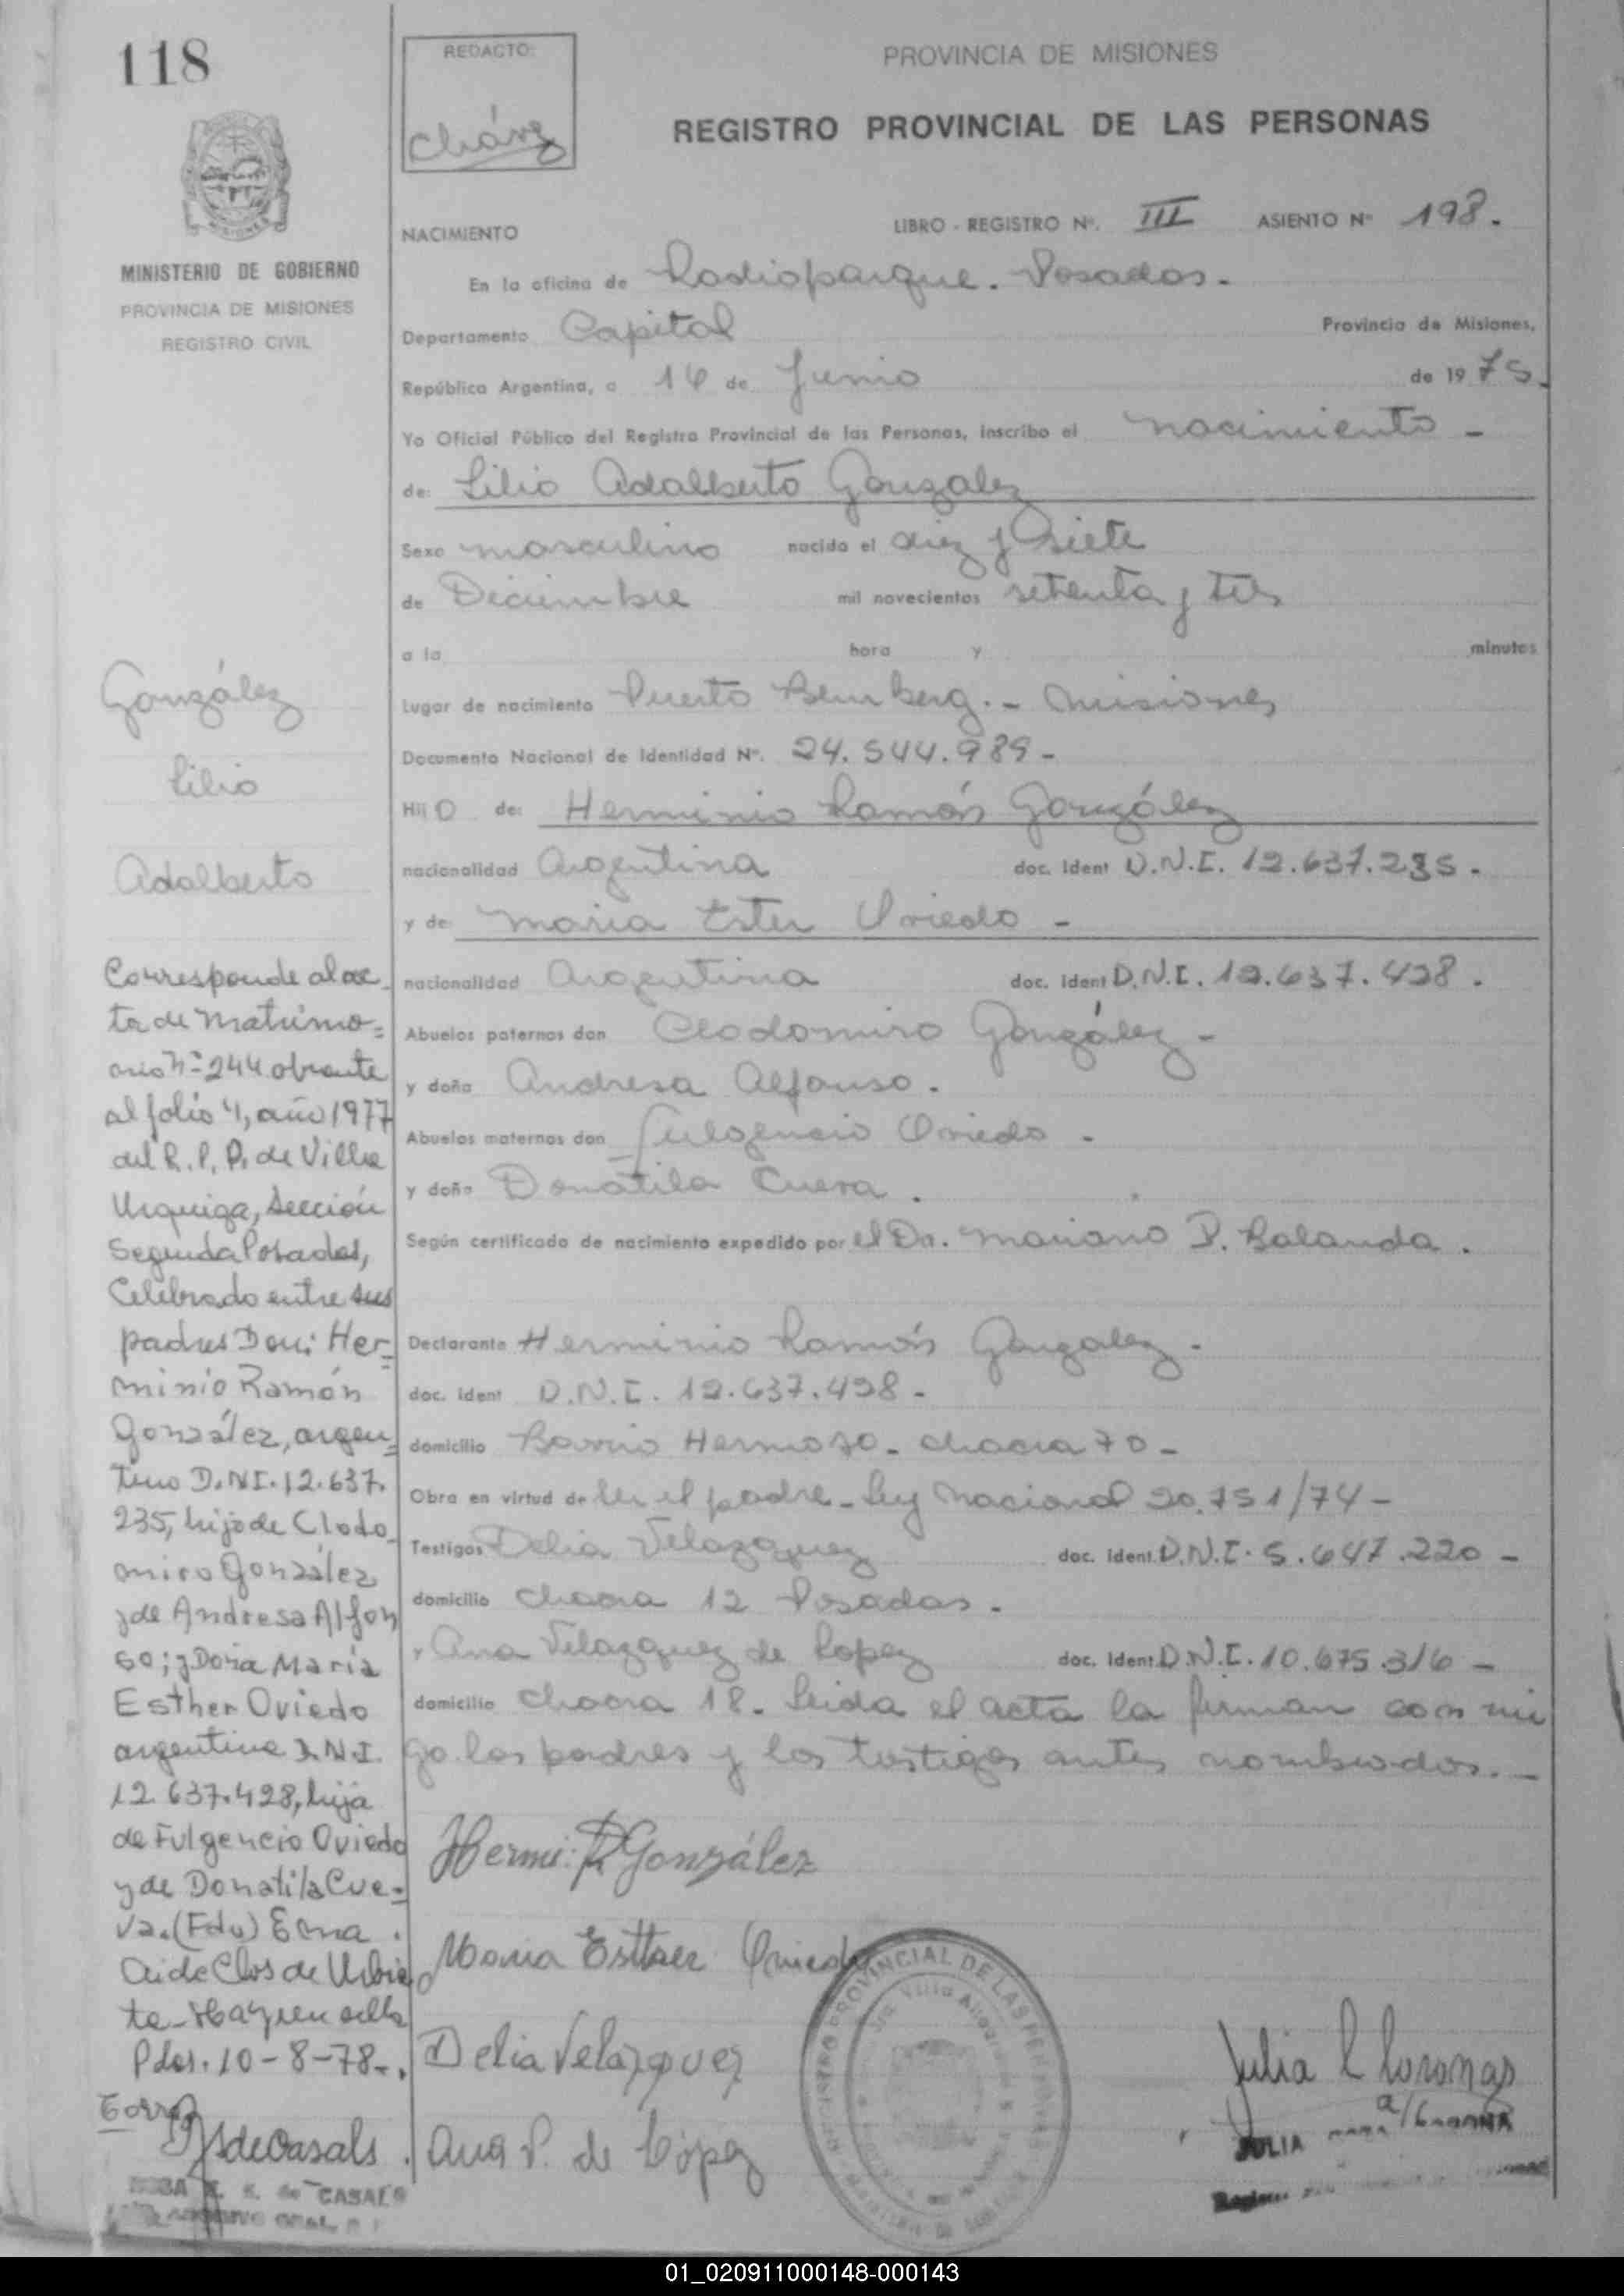 118
REDACTO:
Cháves
PROVINCIA DE MISIONES
REGISTRO PROVINCIAL DE LAS PERSONAS
MINISTERIO DE GOBIERNO
PROVINCIA DE MISIONES
REGISTRO CIVIL
NACIMIENTO
LIBRO - REGISTRO Nº. III ASIENTO Nº 198.
En la oficina de Radioparque. Posadas.
Departamento Capital Provincia de Misiones,
República Argentina, a 16 de Junio de 1975.
Yo Oficial Público del Registro Provincial de las Personas, inscribo el nacimiento -
de: Lilio Adalberto Gonzalez
Sexo masculino nacido el diez y siete
de Diciembre mil novecientos setenta y tres
a la hora y minutos
Lugar de nacimiento Puerto Bemberg. - Misiones
Documento Nacional de Identidad Nº. 24.544.989 -
Hijo de: Herminio Ramón González
nacionalidad Argentina doc. Ident D.N.I. 12.637.235.
y de María Ester Oviedo -
nacionalidad Argentina doc. Ident D.N.I. 12.637.428.
Abuelos paternos don Clodomiro González -
y doña Andresa Alfonso.
Abuelos maternos don Fulgencio Oviedo -
y doña Donatila Cueva.
Según certificado de nacimiento expedido por el Dr. Mariano P. Balanda.
Declarante Herminio Ramón Gonzalez.
doc. Ident D.N.I. 12.637.428 -
domicilio Barrio Hermoso - chacra 70 -
Obra en virtud de ser el padre - Ley Nacional 20.751/74 -
Testigos Delia Velazquez doc. Ident. D.N.I. 5.647.220 -
domicilio Chacra 12 Posadas.
y Ana Velazquez de Lopez doc. Ident. D.N.I. 10.675.316 -
domicilio chacra 18. Leida el acta la firman con mi
go los padres y los testigos antes nombrados. -
Hermi: R González
Maria Esther Oviedo
Delia Velazquez
Ana V. de López
González
Lilio
Adalberto
Corresponde al ac
ta de Matrimo=
nio Nº 244 obrante
al folio 4, año 1977
del R. P. P. de Villa
Urquiza, Sección
Segunda Posadas,
Celebrado entre sus
padres Don: Her=
minio Ramón
González, argen=
tino D.N.I. 12.637.
235, hijo de Clodo
miro González
y de Andresa Alfon
so; y Doña María
Esther Oviedo
argentina D.N.I.
12.637.428, hija
de Fulgencio Oviedo
y de Donatila Cue=
va. (Fdo) Ema
Aide Clos de Urbie
ta - Hay un sello
Pdas. 10-8-78-.
de Casals
de CASALS
PROVINCIAL DE LAS PERSONAS
Julia
JULIA
01_020911000148-000143